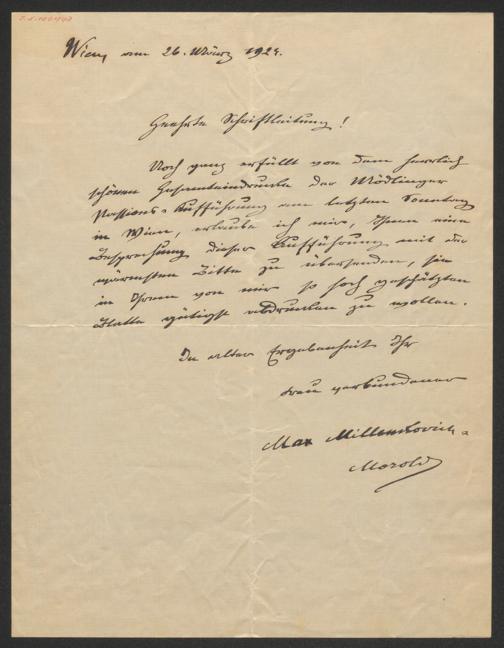 Wien, am 26. März 192
Geehrte Schriftleitung!
Noch ganz erfüllt von dem herrlich
schönen Gesamteindrucke der Mödlinger
Passions-Aufführung am letzten Sonntag
in Wien, erlaube ich mir, Ihnen eine
Besprechung dieser Aufführung mit der
wärmsten Bitte zu übersenden, sie
in Ihrem von mir so hoch geschätzten
Blatte gütigst abdrucken zu wollen.
In alter Ergebenheit Ihr
treu verbundener
Max Millenkovich-
Morold